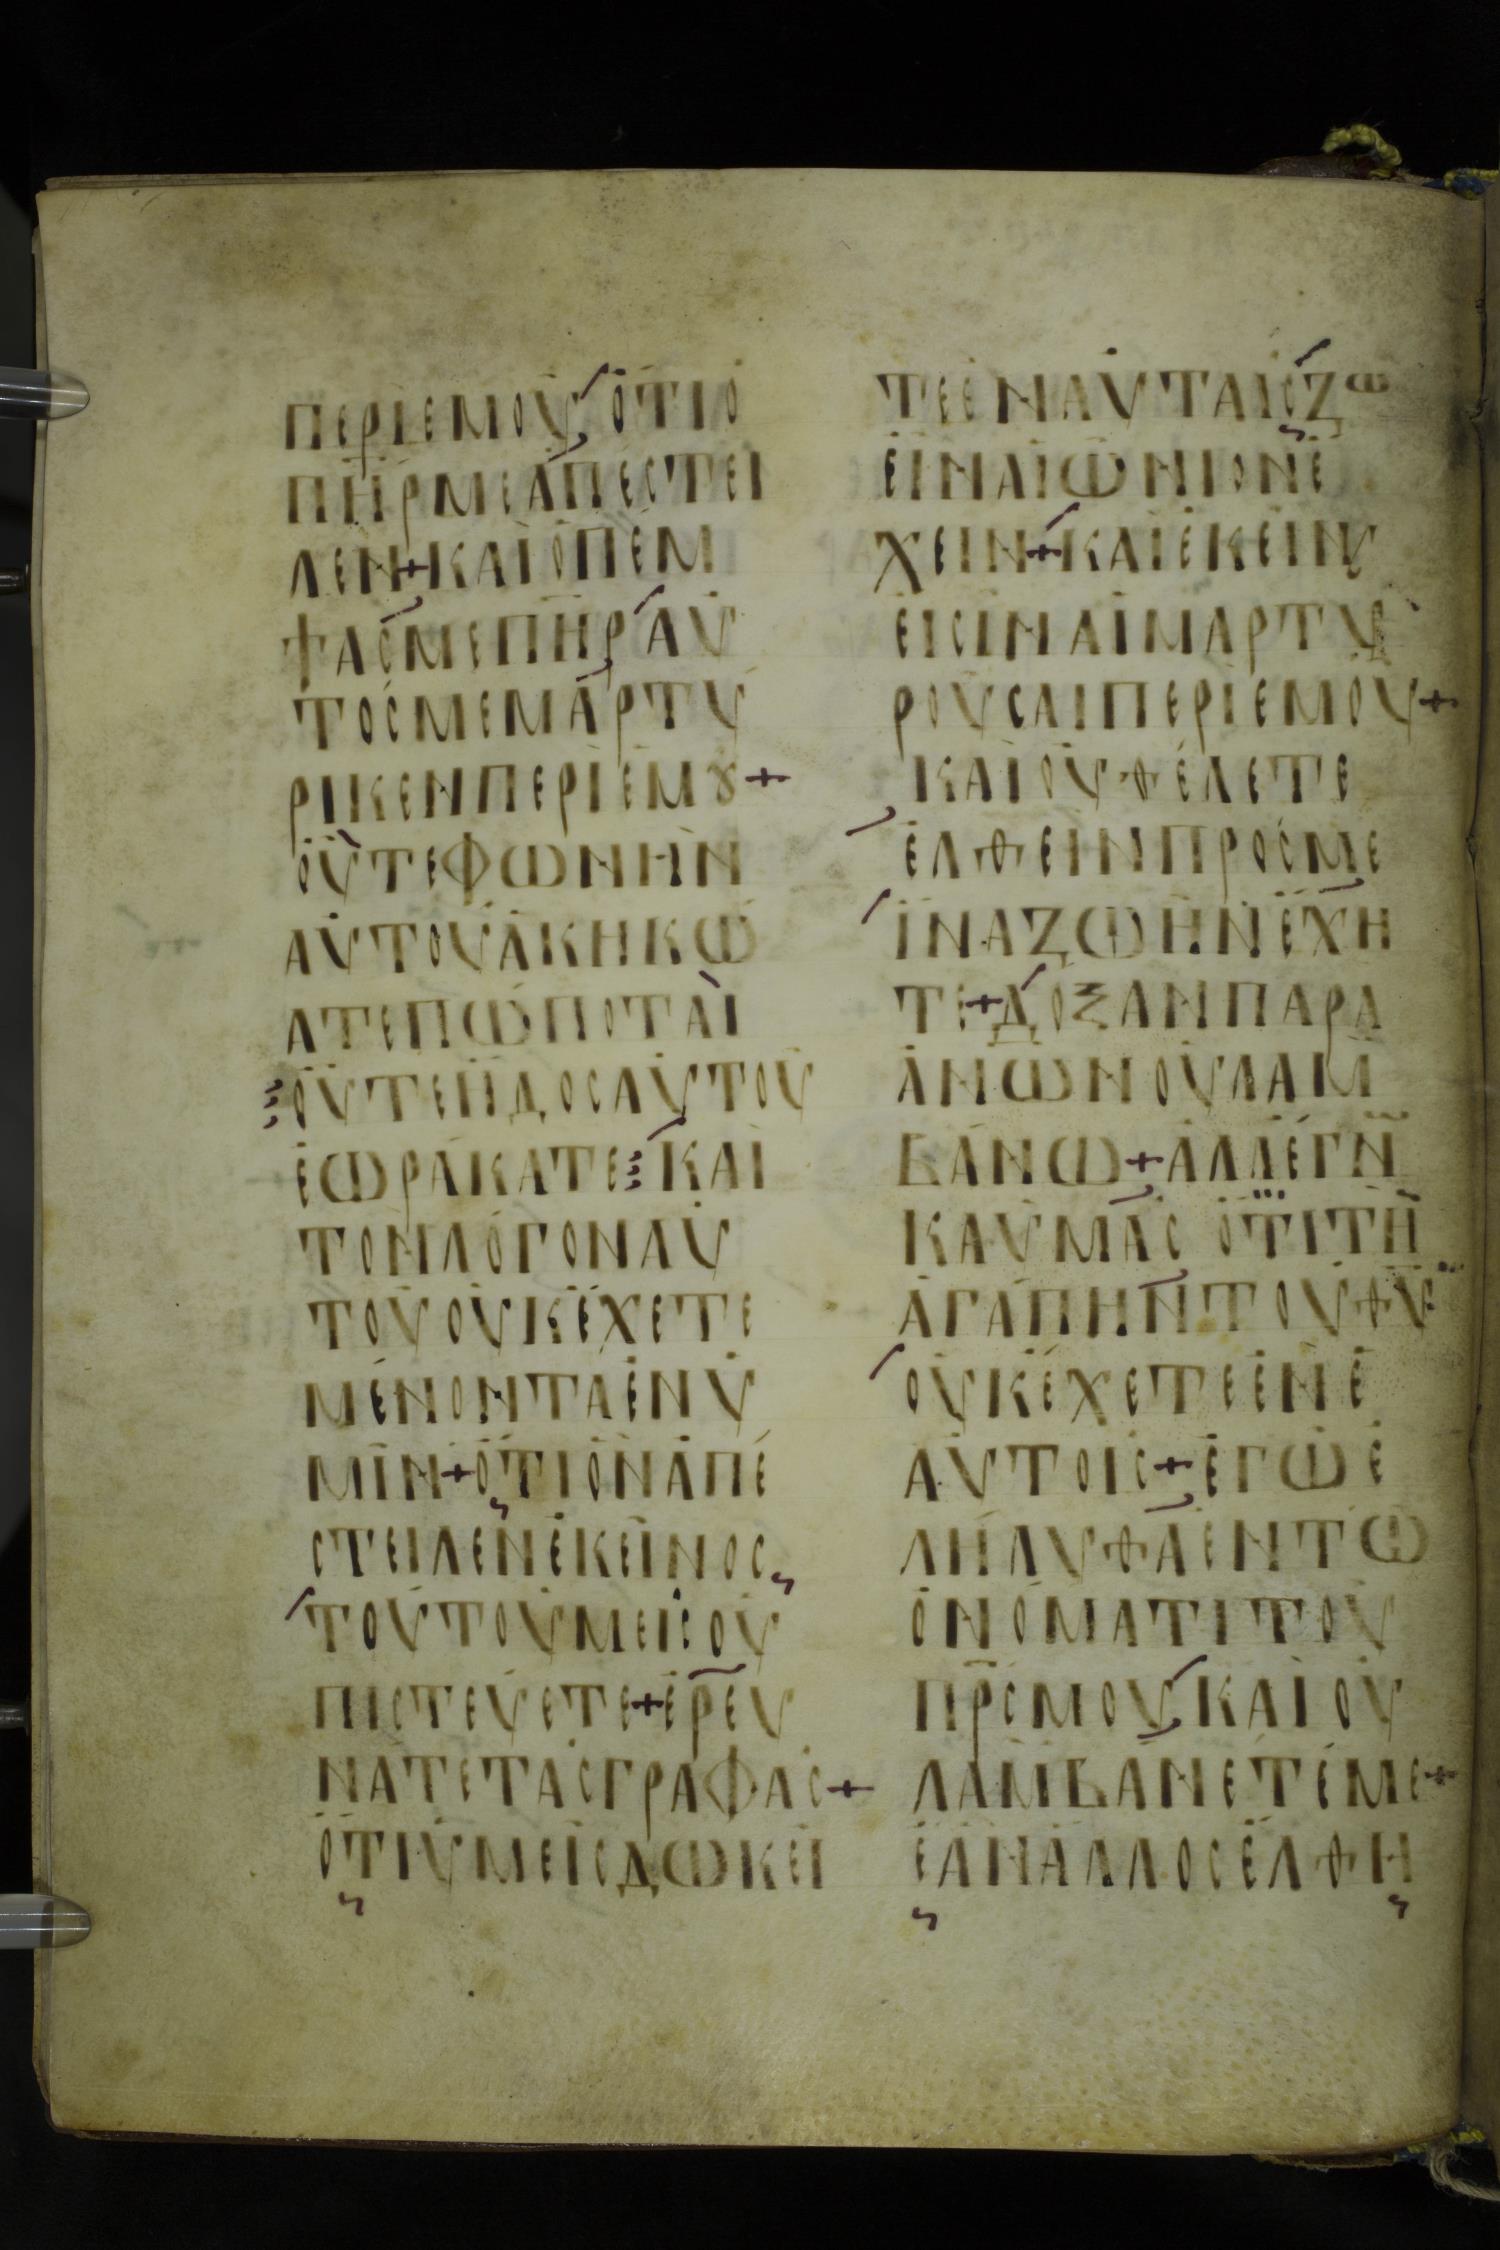 ΠΕΡΙΕΜΟΥ ΟΤΙΟ
ΠΗΡΜΕΑΠΕСΤΕΙ
ΛΕΝ+ΚΑΙΟΠΕΜ
ΨΑСΜΕΠΗΡΑΥ
ΤΟСΜΕΜΑΡΤΥ
ΡΙΚΕΝΠΕΡΙΕΜȣ+
ΟΥΤΕΦΩΝΗΝ
ΑΥΤΟΥΑΚΗΚΩ
ΑΤΕΠΩΠΟΤΑΙ
ΟΥΤΕΙΔΟСΑΥΤΟΥ
ΕΩΡΑΚΑΤΕ ΚΑΙ
ΤΟΝΛΟΓΟΝΑΥ
ΤΟΥΟΥΚΕΧΕΤΕ
ΜΕΝΟΝΤΑΕΝΥ
ΜΙΝ+ΟΤΙΟΝΑΠΕ
СΤΕΙΛΕΝΕΚΕΙΝΟС
ΤΟΥΤΟΥΜΕΙСΟΥ
ΠΙСΤΕΥΕΤΕ+ΕΡΕΥ
ΝΑΤΕΤΑСΓΡΑΦΑС+
ΟΤΙΥΜΕΙСΔΩΚΕΙ
ΤΕΕΝΑΥΤΑΙСΖΩ
ΕΙΝΑΙΩΝΙΟΝΕ
ΧΕΙΝ+ΚΑΙΕΚΕΙΝ
ΕΙСΙΝΑΙΜΑΡΤΥ
ΡΟΥСΑΙΠΕΡΙΕΜΟΥ+
ΚΑΙΟΥΘΕΛΕΤΕ
ΕΛΘΕΙΝΠΡΟСΜΕ
ΙΝΑΖΩΗΝΕΧΗ
ΤΕ+ΔΟΞΑΝΠΑΡΑ
ΑΝΩΝΟΥΛΑΜ
ΒΑΝΩ+ΑΛΛΕΓΝ
ΚΑΥΜΑС ΟΤΙΤΗ
ΑΓΑΠΗΝΤΟΥΘΥ
ΟΥΚΕΧΕΤΕΕΝΕ
ΑΥΤΟΙС+ΕΓΩΕ
ΛΗΛΥΘΑΕΝΤΩ
ΟΝΟΜΑΤΙΤΟΥ
ΠΡСΜΟΥΚΑΙΟΥ
ΛΑΜΒΑΝΕΤΕΜΕ+
ΕΑΝΑΛΛΟСΕΛΘΗ